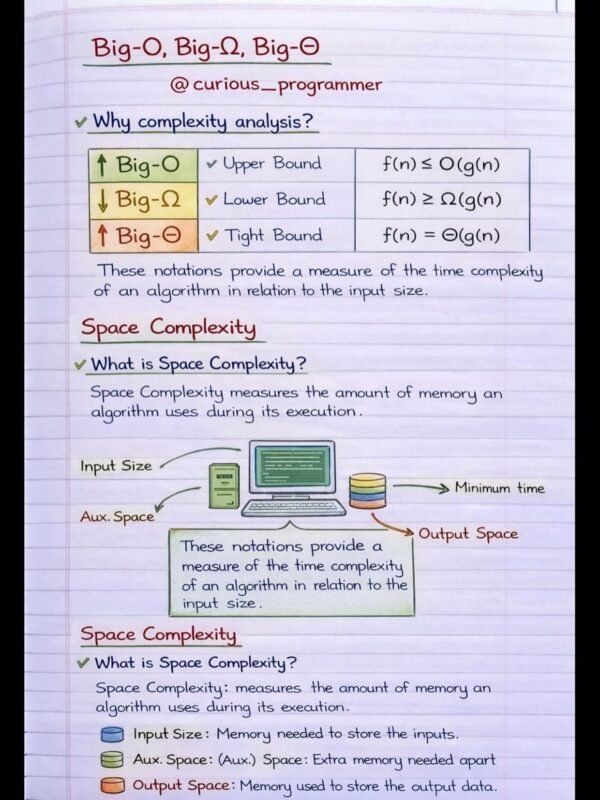 Big-O, Big-Ω, Big-Θ
@curious_programmer
✓ Why complexity analysis?
↑ Big-O ✓ Upper Bound f(n) ≤ O(g(n)
↓ Big-Ω ✓ Lower Bound f(n) ≥ Ω(g(n)
↑ Big-Θ ✓ Tight Bound f(n) = Θ(g(n)
These notations provide a measure of the time complexity
of an algorithm in relation to the input size.
Space Complexity
✓ What is Space Complexity?
Space Complexity measures the amount of memory an
algorithm uses during its execution.
Input Size
Minimum time
Aux. Space
Output Space
These notations provide a
measure of the time complexity
of an algorithm in relation to the
input size.
Space Complexity
✓ What is Space Complexity?
Space Complexity: measures the amount of memory an
algorithm uses during its execution.
Input Size: Memory needed to store the inputs.
Aux. Space: (Aux.) Space: Extra memory needed apart
Output Space: Memory used to store the output data.